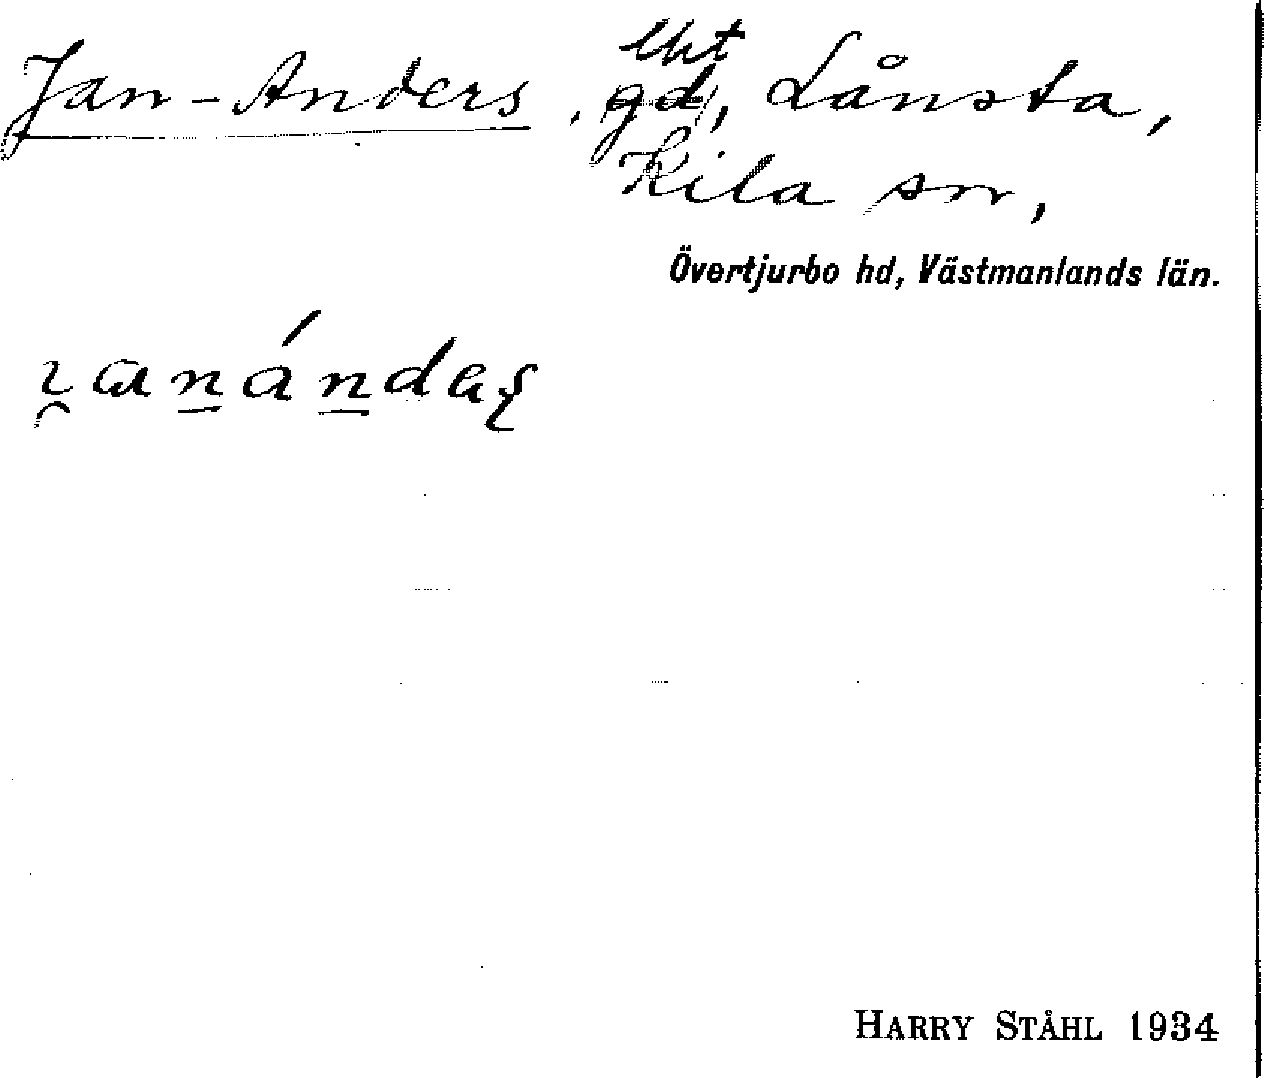 Jan-Anders, gd, Lånsta,
Kila sn,
Övertjurbo hd, Västmanlands län.
HARRY STÅHL 1934